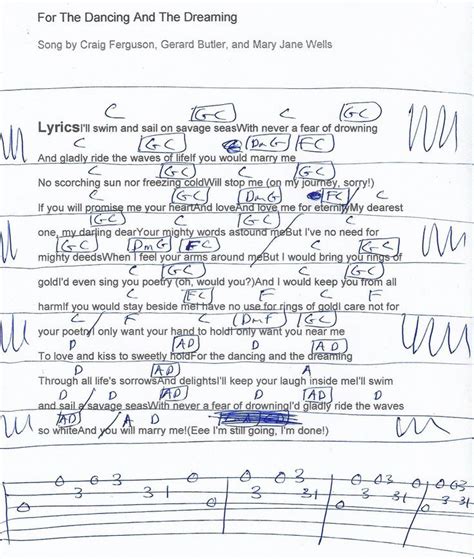 For The Dancing And The Dreaming
Song by Craig Ferguson, Gerard Butler, and Mary Jane Wells
C GC C GC
LyricsI'll swim and sail on savage seasWith never a fear of drowning
C GC DmG FC
And gladly ride the waves of lifeIf you would marry me
C GC C GC
No scorching sun nor freezing coldWill stop me (on my journey, sorry!)
C GC DmG FC
If you will promise me your heartAnd loveAnd love me for eternityMy dearest
GC C GC C
one, my darling dearYour mighty words astound meBut I've no need for
GC DmG FC C
mighty deedsWhen I feel your arms around meBut I would bring you rings of
GC C GC C
goldI'd even sing you poetry (oh, would you?)And I would keep you from all
GC C F C
harmIf you would stay beside meI have no use for rings of goldI care not for
C F C DmF GC
your poetryI only want your hand to holdI only want you near me
D AD D
To love and kiss to sweetly holdFor the dancing and the dreaming
AD D
Through all life's sorrowsAnd delightsI'll keep your laugh inside meI'll swim
D AD D AD D
and sail a savage seasWith never a fear of drowningI'd gladly ride the waves
AD A D
so whiteAnd you will marry me!(Eee I'm still going, I'm done!)
0 0 3 0 0 3 0 0 3 0 0 3
3 3 1 3 3 1 3 3 1 3 3 1
0 0 0 0